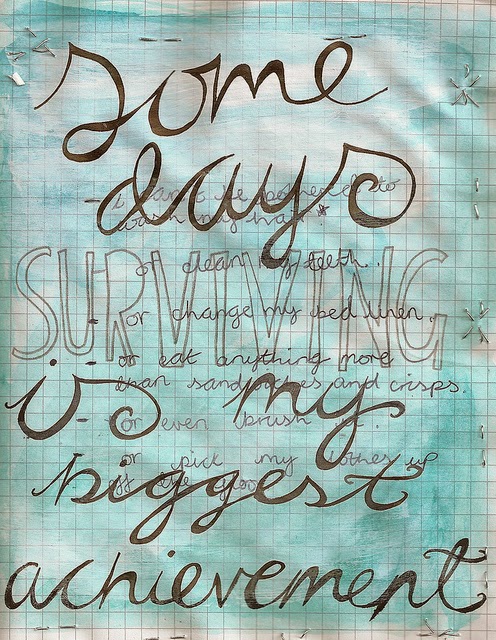 some
days
- i can't be bothered to
wash my hair.
- or clean my teeth.
SURVIVING
- or change my bed linen.
- or eat anything more
than sandwiches and crisps.
is my
- or even brush it.
- or pick my clothes up
off the floor
biggest
achievement